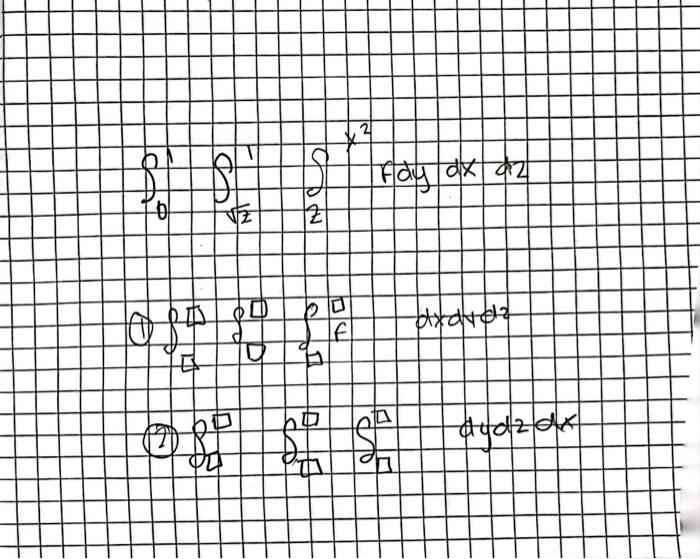 ∫₀¹ ∫_√z¹ ∫_z^x² f dy dx dz
① ∫_□^□ ∫_□^□ ∫_□^□ f dx dy dz
② ∫_□^□ ∫_□^□ ∫_□^□ dy dz dx